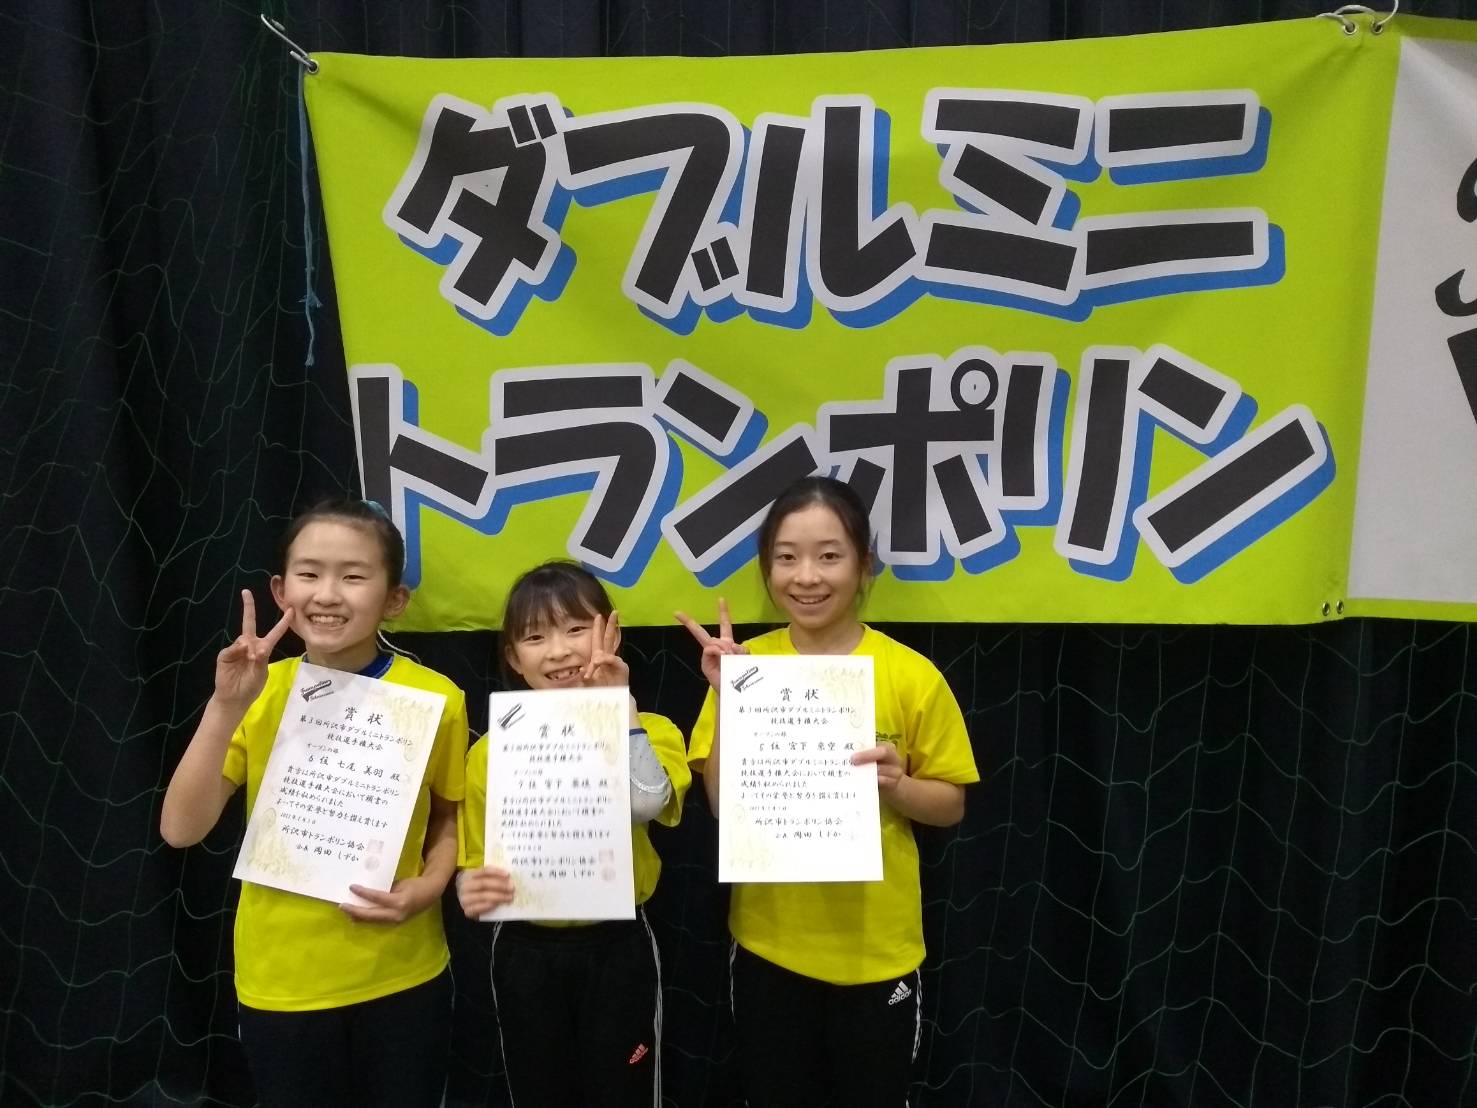 ダブルミニ
トランポリン
Trampoline
Tokorozawa
賞状
第3回所沢市ダブルミニトランポリン
競技選手権大会
オープンの部
6位 七尾 美羽 殿
貴方は所沢市ダブルミニトランポリン
競技選手権大会において頭書の
成績を収められました
よってその栄誉と努力を讃え賞します
所沢市トランポリン協会
会長 岡田 しずか
賞状
第3回所沢市ダブルミニトランポリン
競技選手権大会
オープンの部
7位 宮下 殿
貴方は所沢市ダブルミニトランポリン
競技選手権大会において頭書の
成績を収められました
よってその栄誉と努力を讃え賞します
所沢市トランポリン協会
会長 岡田 しずか
賞状
第3回所沢市ダブルミニトランポリン
競技選手権大会
オープンの部
5位 宮下 來空 殿
貴方は所沢市ダブルミニトランポリン
競技選手権大会において頭書の
成績を収められました
よってその栄誉と努力を讃え賞します
所沢市トランポリン協会
会長 岡田 しずか
adidas
adidas